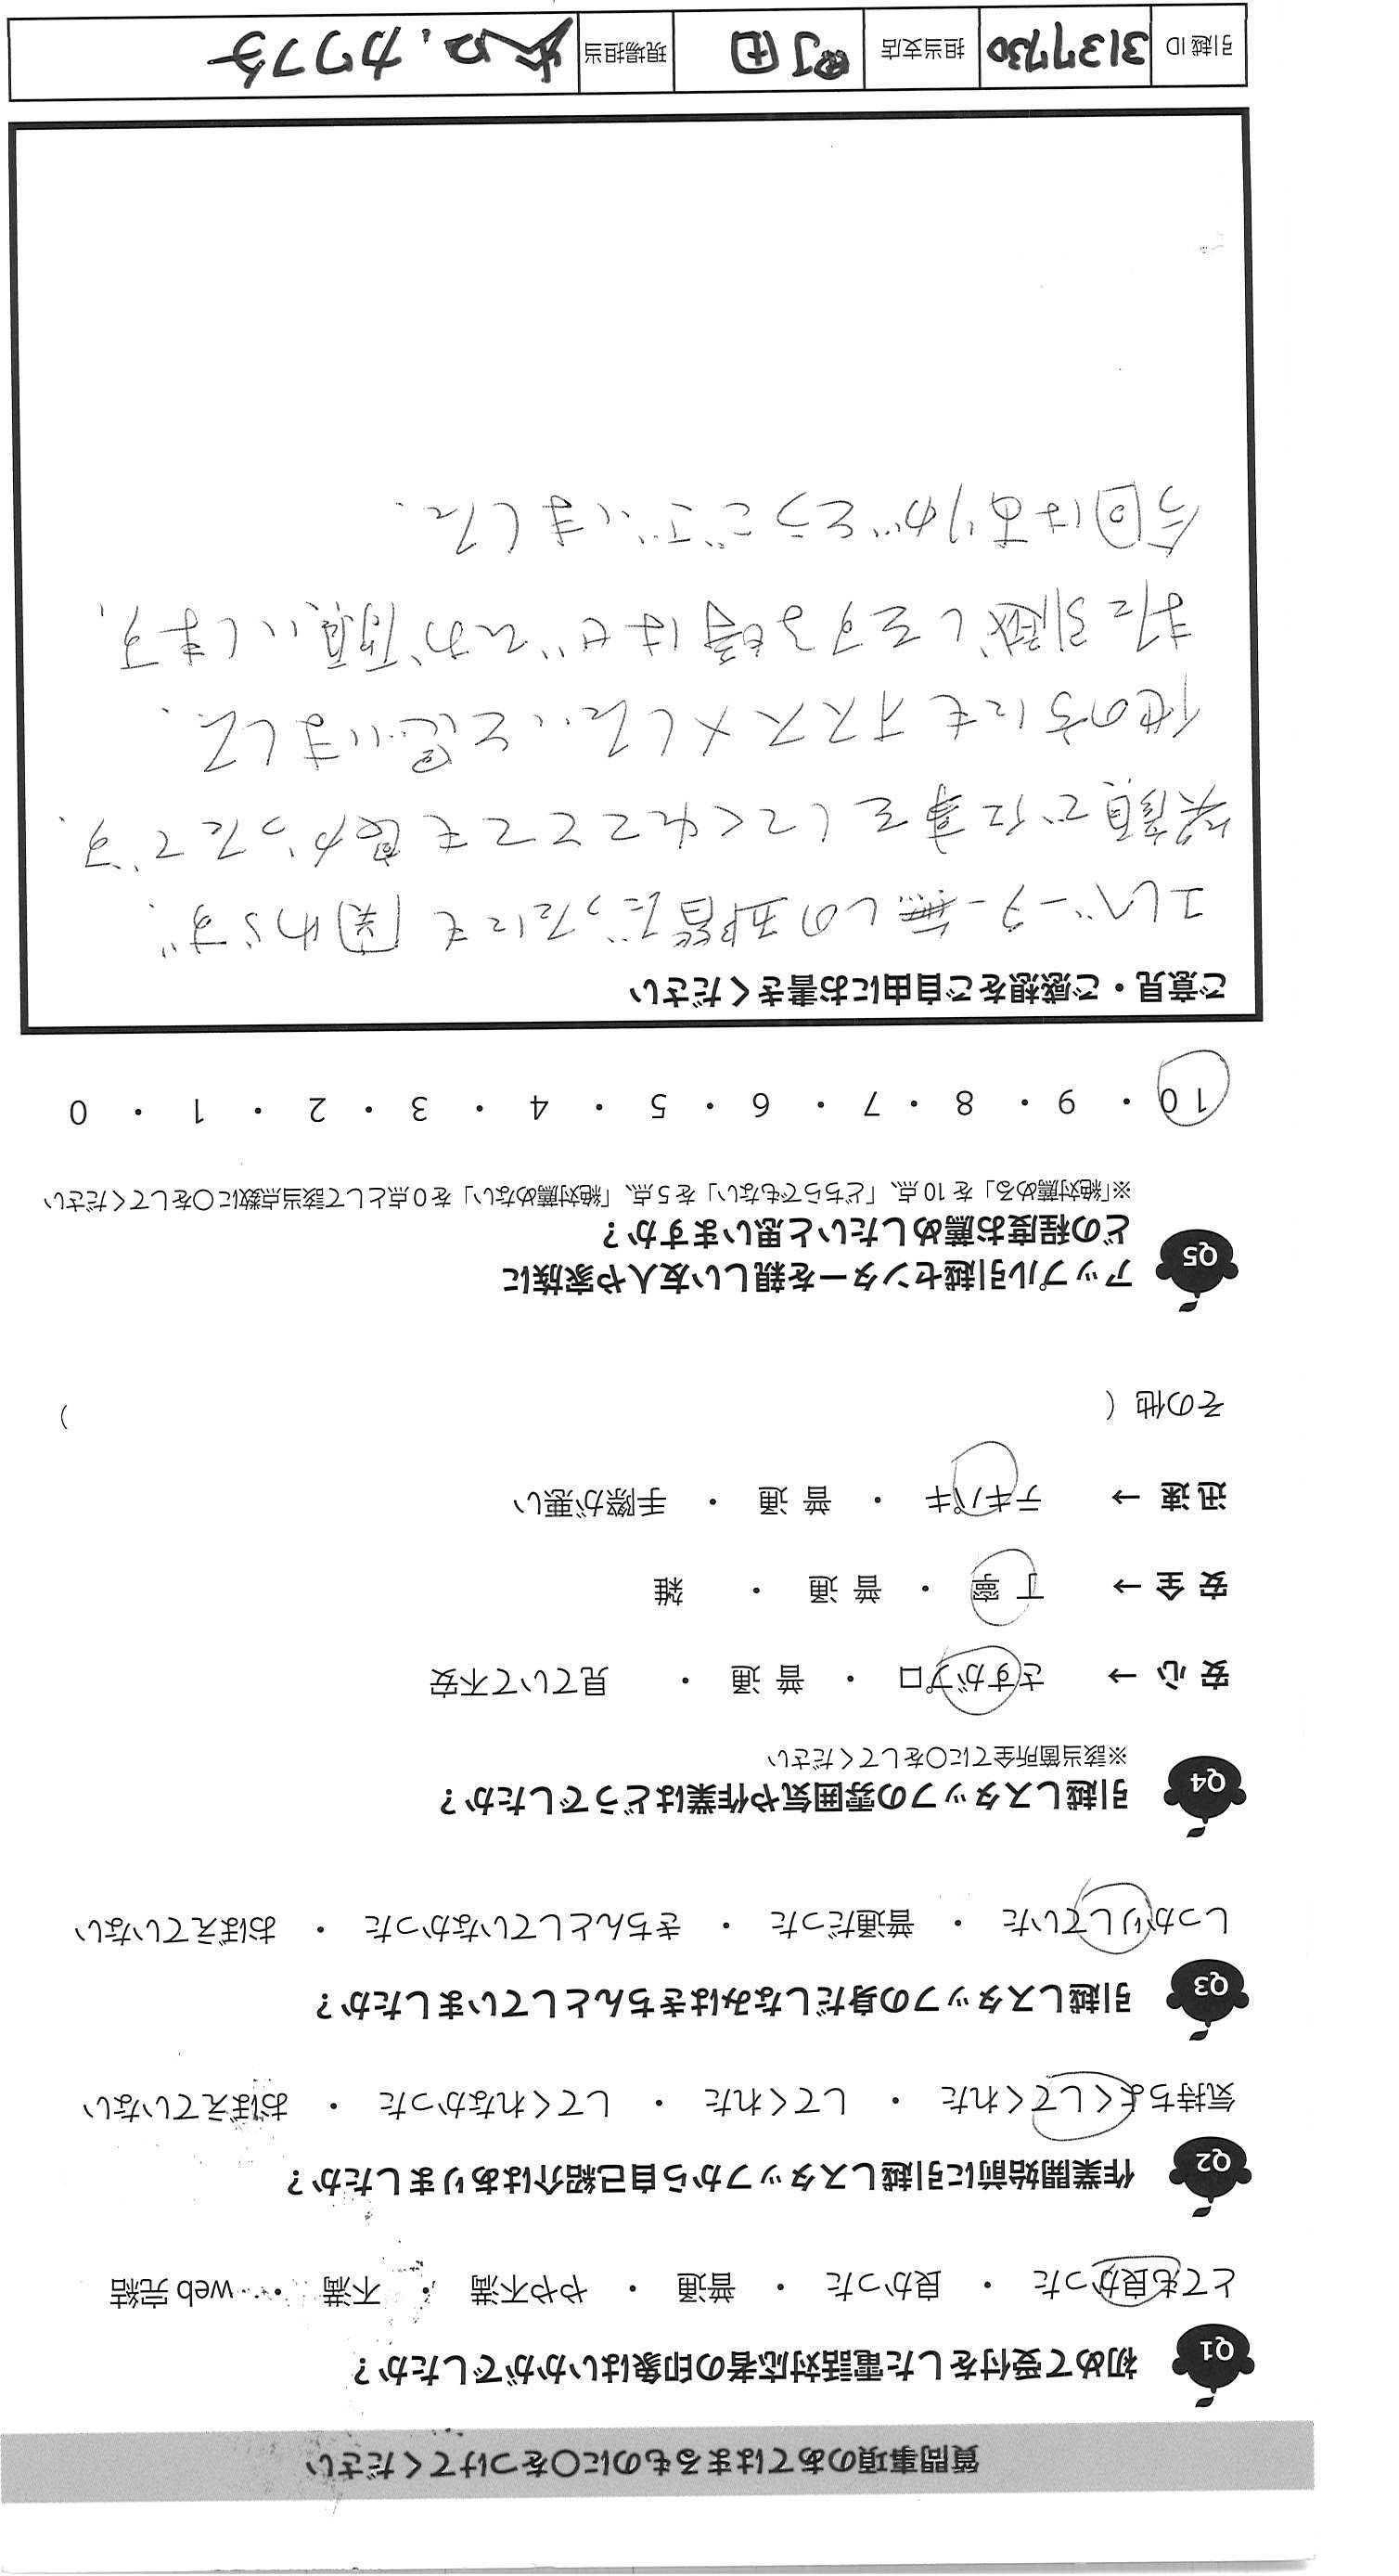 質問事項のあてはまるものに○をつけてください
Q1 初めて受付をした電話対応者の印象はいかがでしたか？
とても良かった ・ 良かった ・ 普通 ・ やや不満 ・ 不満 ・ web 完結
Q2 作業開始前に引越しスタッフから自己紹介はありましたか？
気持ちよくしてくれた ・ してくれた ・ してくれなかった ・ おぼえていない
Q3 引越しスタッフの身だしなみはきちんとしていましたか？
しっかりしていた ・ 普通だった ・ きちんとしていなかった ・ おぼえていない
Q4 引越しスタッフの雰囲気や作業はどうでしたか？
※該当箇所全てに○をしてください
安心 → さすがプロ ・ 普通 ・ 見ていて不安
安全 → 丁寧 ・ 普通 ・ 雑
迅速 → テキパキ ・ 普通 ・ 手際が悪い
その他（ ）
Q5 アップル引越センターを親しい友人や家族に
どの程度お薦めしたいと思いますか？
※「絶対薦める」を 10 点、「どちらでもない」を 5 点、「絶対薦めない」を 0 点として該当点数に○をしてください
10 ・ 9 ・ 8 ・ 7 ・ 6 ・ 5 ・ 4 ・ 3 ・ 2 ・ 1 ・ 0
ご意見・ご感想をご自由にお書きください
エレベーター無しの五階だったにも関わらず、
笑顔で仕事をしてくれてとても良かったです。
他の方にもオススメしたいと思いました。
また引越しをする時はぜひお願いします。
今回はありがとうございました。
引越 ID 3137730 担当支店 町田 現場担当 カワフチ